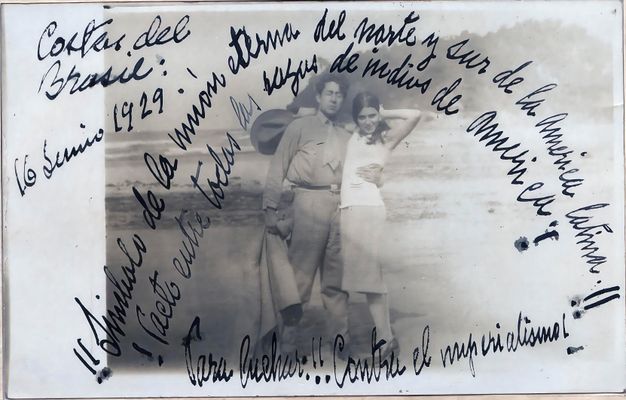 Costas del
Brasil:
16 Junio 1929.
¡¡Simbolo de la unión eterna del norte y sur de la américa latina.!!
¡Pacto entre todas las razas de indios de américa!
Para luchar!! Contra el imperialismo!